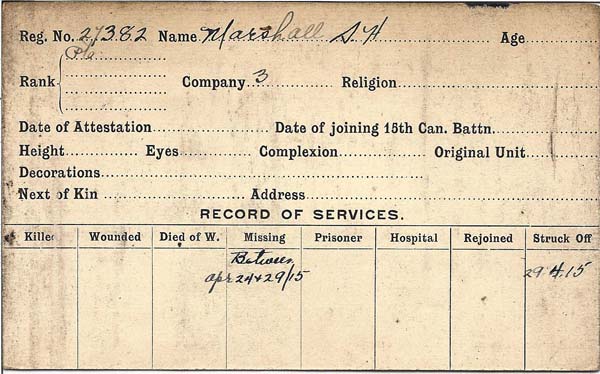 Reg. No. 27382 Name Marshall S H Age
Pte
Rank Company 3 Religion
Date of Attestation Date of joining 15th Can. Battn.
Height Eyes Complexion Original Unit
Decorations
Next of Kin Address
RECORD OF SERVICES.
Killed Wounded Died of W. Missing Prisoner Hospital Rejoined Struck Off
Between
Apr 24 & 29/15 29.4.15